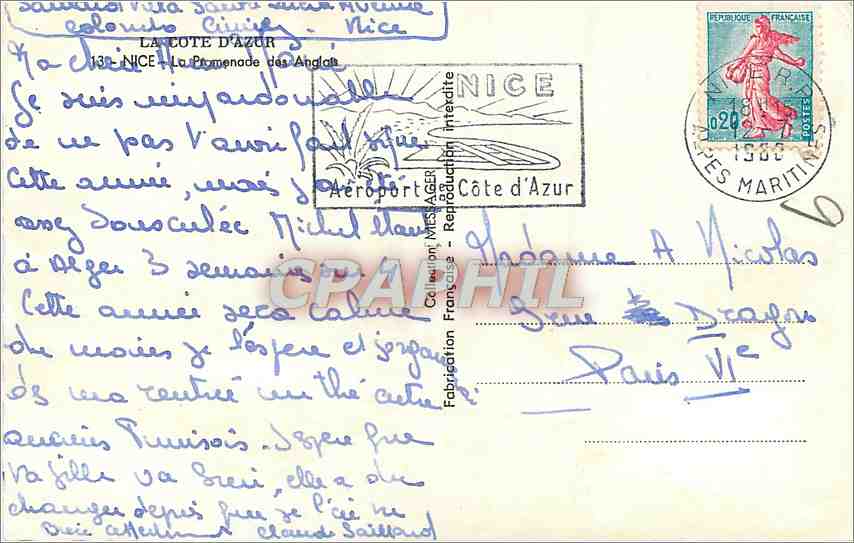 Saillard Villa Sainte Anne Avenue
Colombo Cimiez - Nice
LA COTE D'AZUR
13 - NICE - La Promenade des Anglais
Ma chère
Je suis impardonnable
de ne pas t'avoir fait signe
cette année, mais j'ai été
assez bousculée Michel étant
à Alger 3 semaines sur 4
Cette année sera calme
du moins je l'espère et j'organise
dès ma rentrée un thé entre
anciens Tunisois. J'espère que
ta fille va bien, elle a du
changer depuis que je l'ai vue
Bien affectueusement Claude Saillard
NICE
Aéroport de la Côte d'Azur
REPUBLIQUE FRANÇAISE
0,20
POSTES
NICE R.P.
18H
12-
1960
ALPES MARITIMES
Collection, MESSAGER
Fabrication Française - Reproduction interdite
Madame A Nicolas
9 rue du Dragon
Paris VIe
CPAPHIL